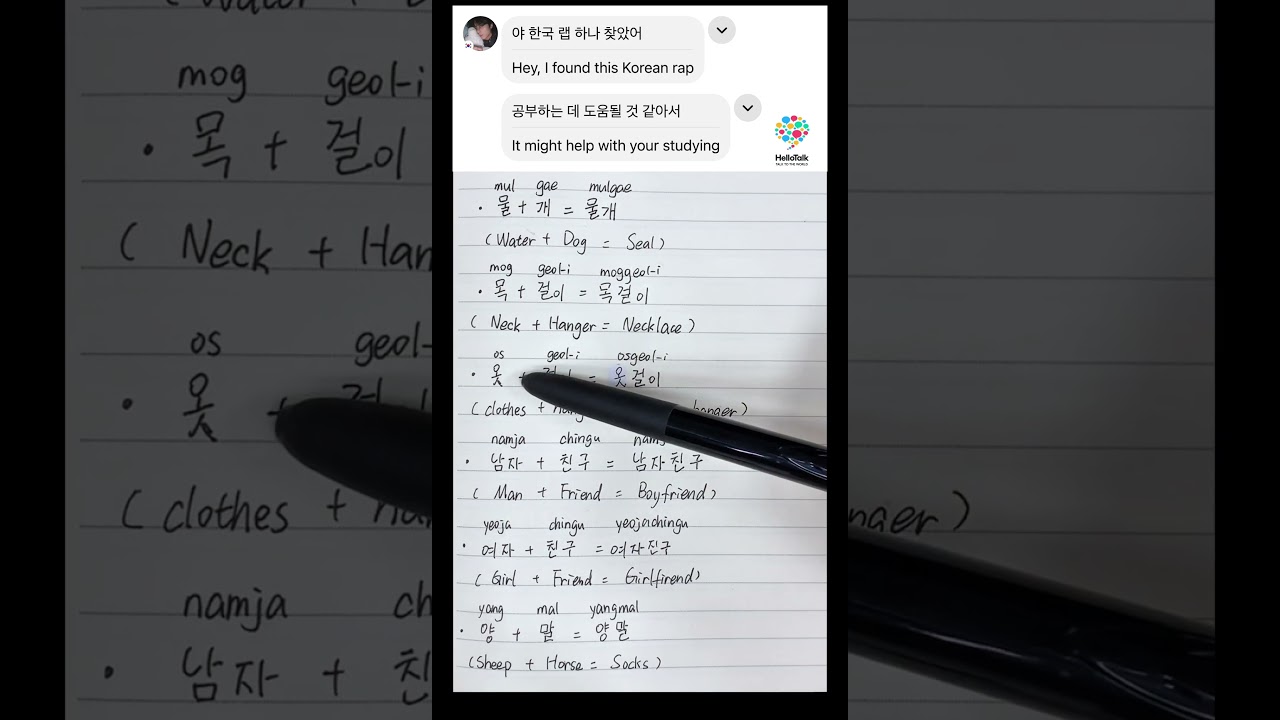 야 한국 랩 하나 찾았어
Hey, I found this Korean rap
공부하는 데 도움될 것 같아서
It might help with your studying
HelloTalk
TALK TO THE WORLD
mul gae mulgae
· 물 + 개 = 물개
(Water + Dog = Seal)
mog geol-i moggeol-i
· 목 + 걸이 = 목걸이
( Neck + Hanger = Necklace )
os geol-i osgeol-i
· 옷 + = 옷걸이
(clothes + hanger)
namja chingu
· 남자 + 친구 = 남자친구
( Man + Friend = Boyfriend )
yeoja chingu yeojachingu
· 여자 + 친구 = 여자진구
( Girl + Friend = Girlfirend)
yang mal yangmal
· 양 + 말 = 양말
(Sheep + Horse = Socks )